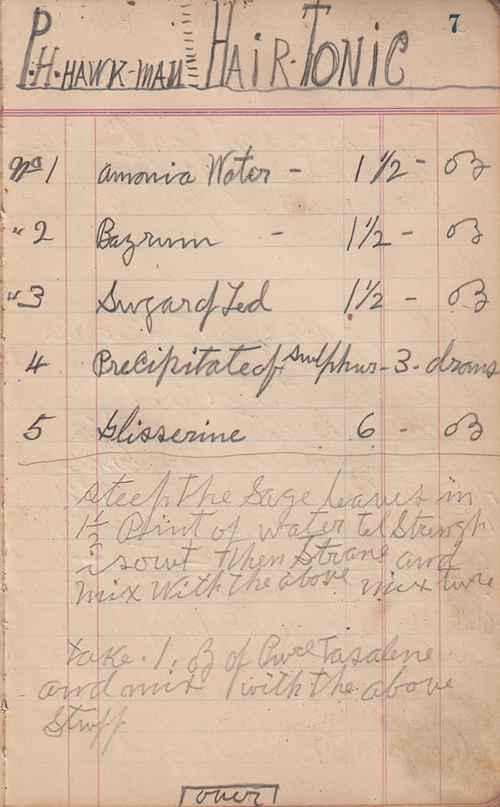 7
P.H. HAWK-MAN HAIR-TONIC
No 1 Amonia Water - 1 1/2 - oz
" 2 Bayrum - 1 1/2 - oz
" 3 Sugar of Led 1 1/2 - oz
4 Precipitate of Sulphur - 3 - drams
5 Glisserine 6 - oz
steep the Sage leaves in
1 1/2 Point of water tel Strengh
is out then Strane and
mix with the above mixture
Take . 1 . oz of Pure Vasalene
and mix with the above
Stuff
over